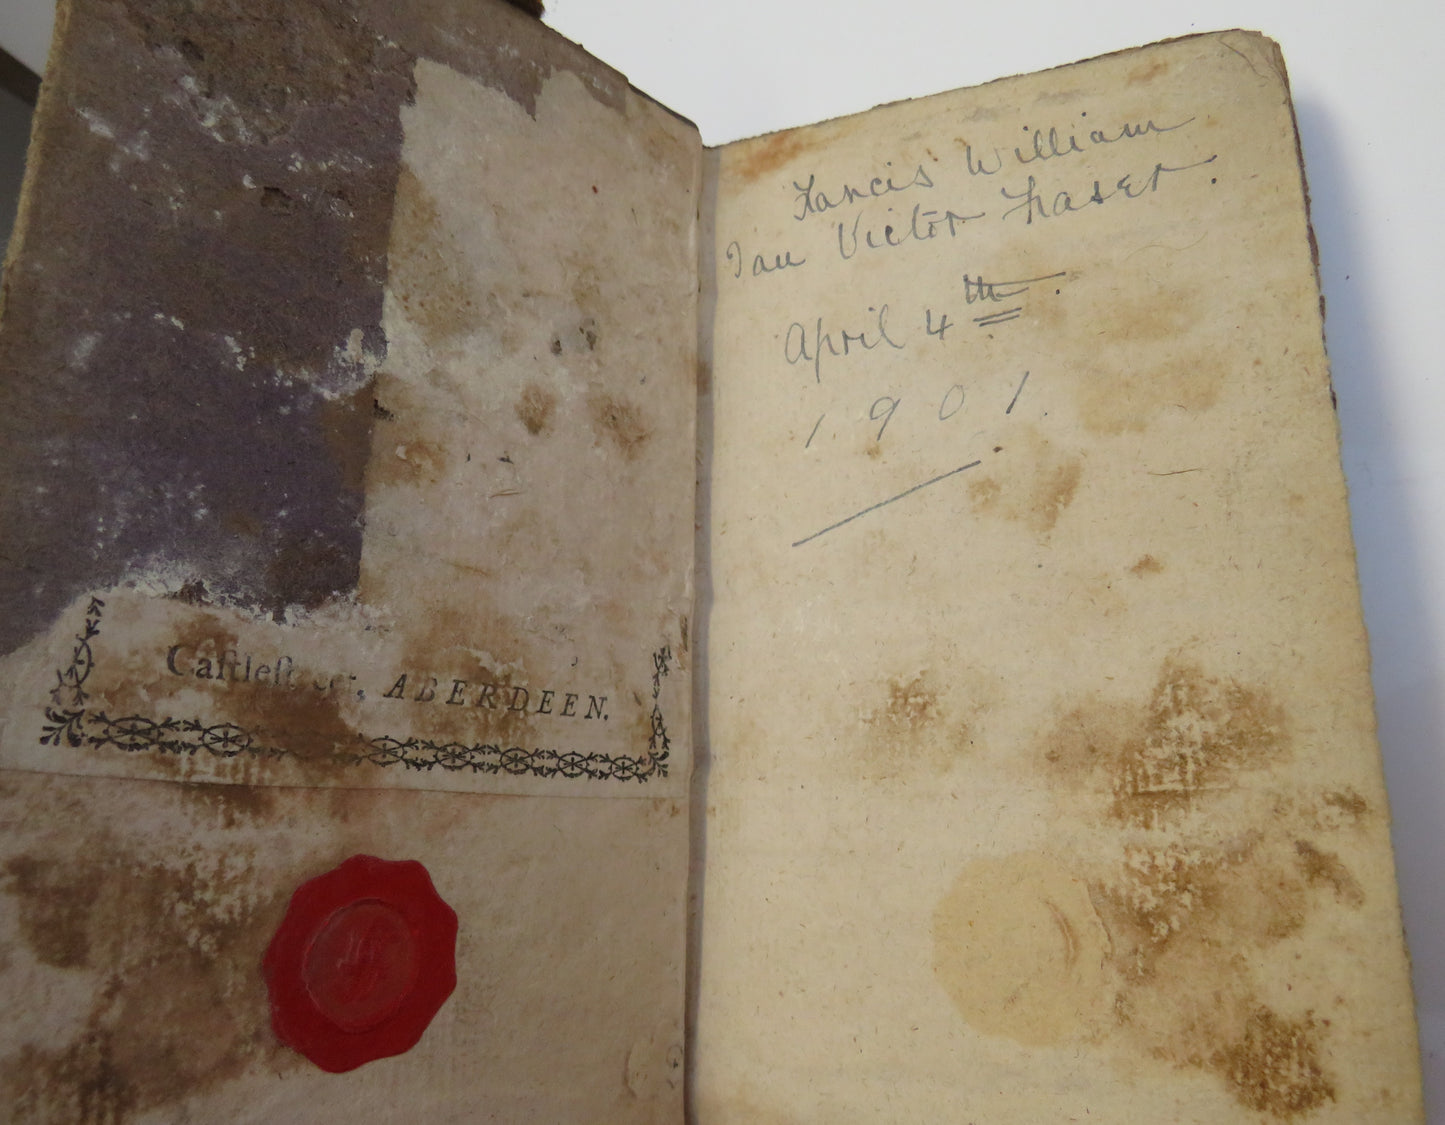 Caſtleſtreet, ABERDEEN.
Francis William
Ian Victor Fraser.
April 4th.
1901.